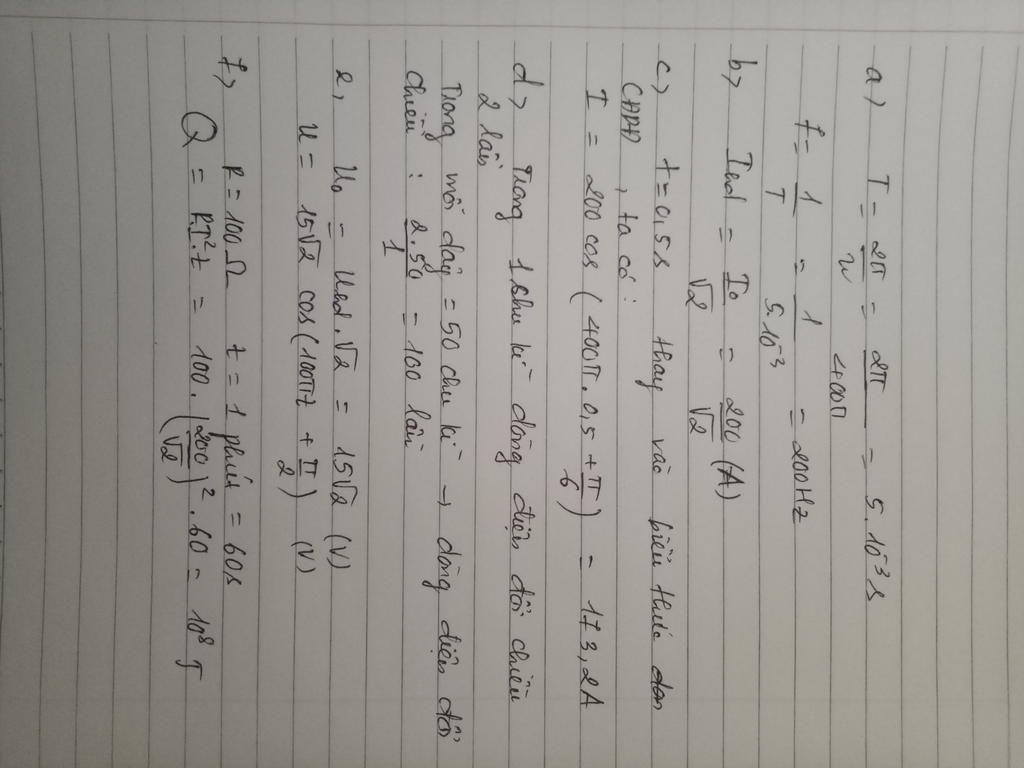 a) T = 2π/w = 2π/400π = 5.10⁻³ s
f = 1/T = 1/5.10⁻³ = 200Hz
b) Ihd = I₀/√2 = 200/√2 (A)
c) t = 0,5s thay vào biểu thức dòn
CĐDĐ, ta có:
I = 200 cos (400π.0,5 + π/6) = 173,2A
d) Trong 1 chu kì dòng điện đổi chiều
2 lần
Trong mỗi dây = 50 chu kì → dòng điện đổi
chiều : 2.50/1 = 100 lần
e, U₀ = Uhd.√2 = 15√2 (V)
u = 15√2 cos(100πt + π/2) (V)
f) R = 100Ω t = 1 phút = 60s
Q = RI².t = 100.(200/√2)².60 = 10⁸ J